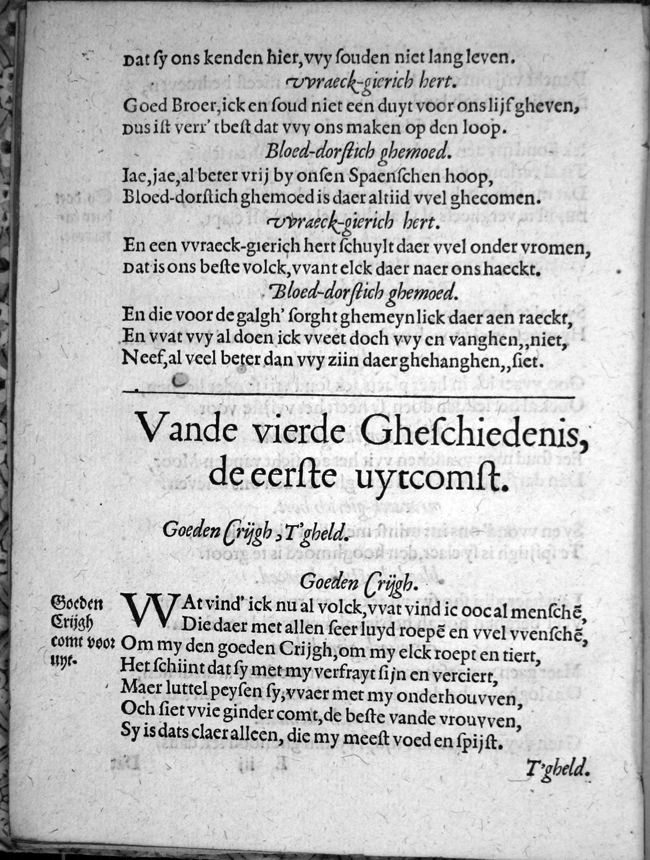 Dat ſy ons kenden hier, vvy ſouden niet lang leven.
VVraeck-gierich hert.
Goed Broer, ick en ſoud niet een duyt voor ons lijf gheven,
Dus iſt verr' tbeſt dat vvy ons maken op den loop.
Bloed-dorſtich ghemoed.
Iae, jae, al beter vrij by onſen Spaenſchen hoop,
Bloed-dorſtich ghemoed is daer altiid vvel ghecomen.
VVraeck-gierich hert.
En een vvraeck-gierich hert ſchuylt daer vvel onder vromen,
Dat is ons beſte volck, vvant elck daer naer ons haeckt.
Bloed-dorſtich ghemoed.
En die voor de galgh' ſorght ghemeynlick daer aen raeckt,
En vvat vvy al doen ick vveet doch vvy en vanghen,, niet,
Neef, al veel beter dan vvy ziin daer ghehanghen,, ſiet.
Vande vierde Gheſchiedenis,
de eerſte uytcomſt.
Goeden Crijgh, T'gheld.
Goeden Crijgh.
Goeden
Crijgh
comt voor
uyt.
WAt vind' ick nu al volck, vvat vind ic ooc al menſchẽ,
Die daer met allen ſeer luyd roepẽ en vvel vvenſchẽ,
Om my den goeden Crijgh, om my elck roept en tiert,
Het ſchiint dat ſy met my verfrayt ſijn en verciert,
Maer luttel peyſen ſy, vvaer met my onderhouvven,
Och ſiet vvie ginder comt, de beſte vande vrouvven,
Sy is dats claer alleen, die my meeſt voed en ſpijſt.
T'gheld.